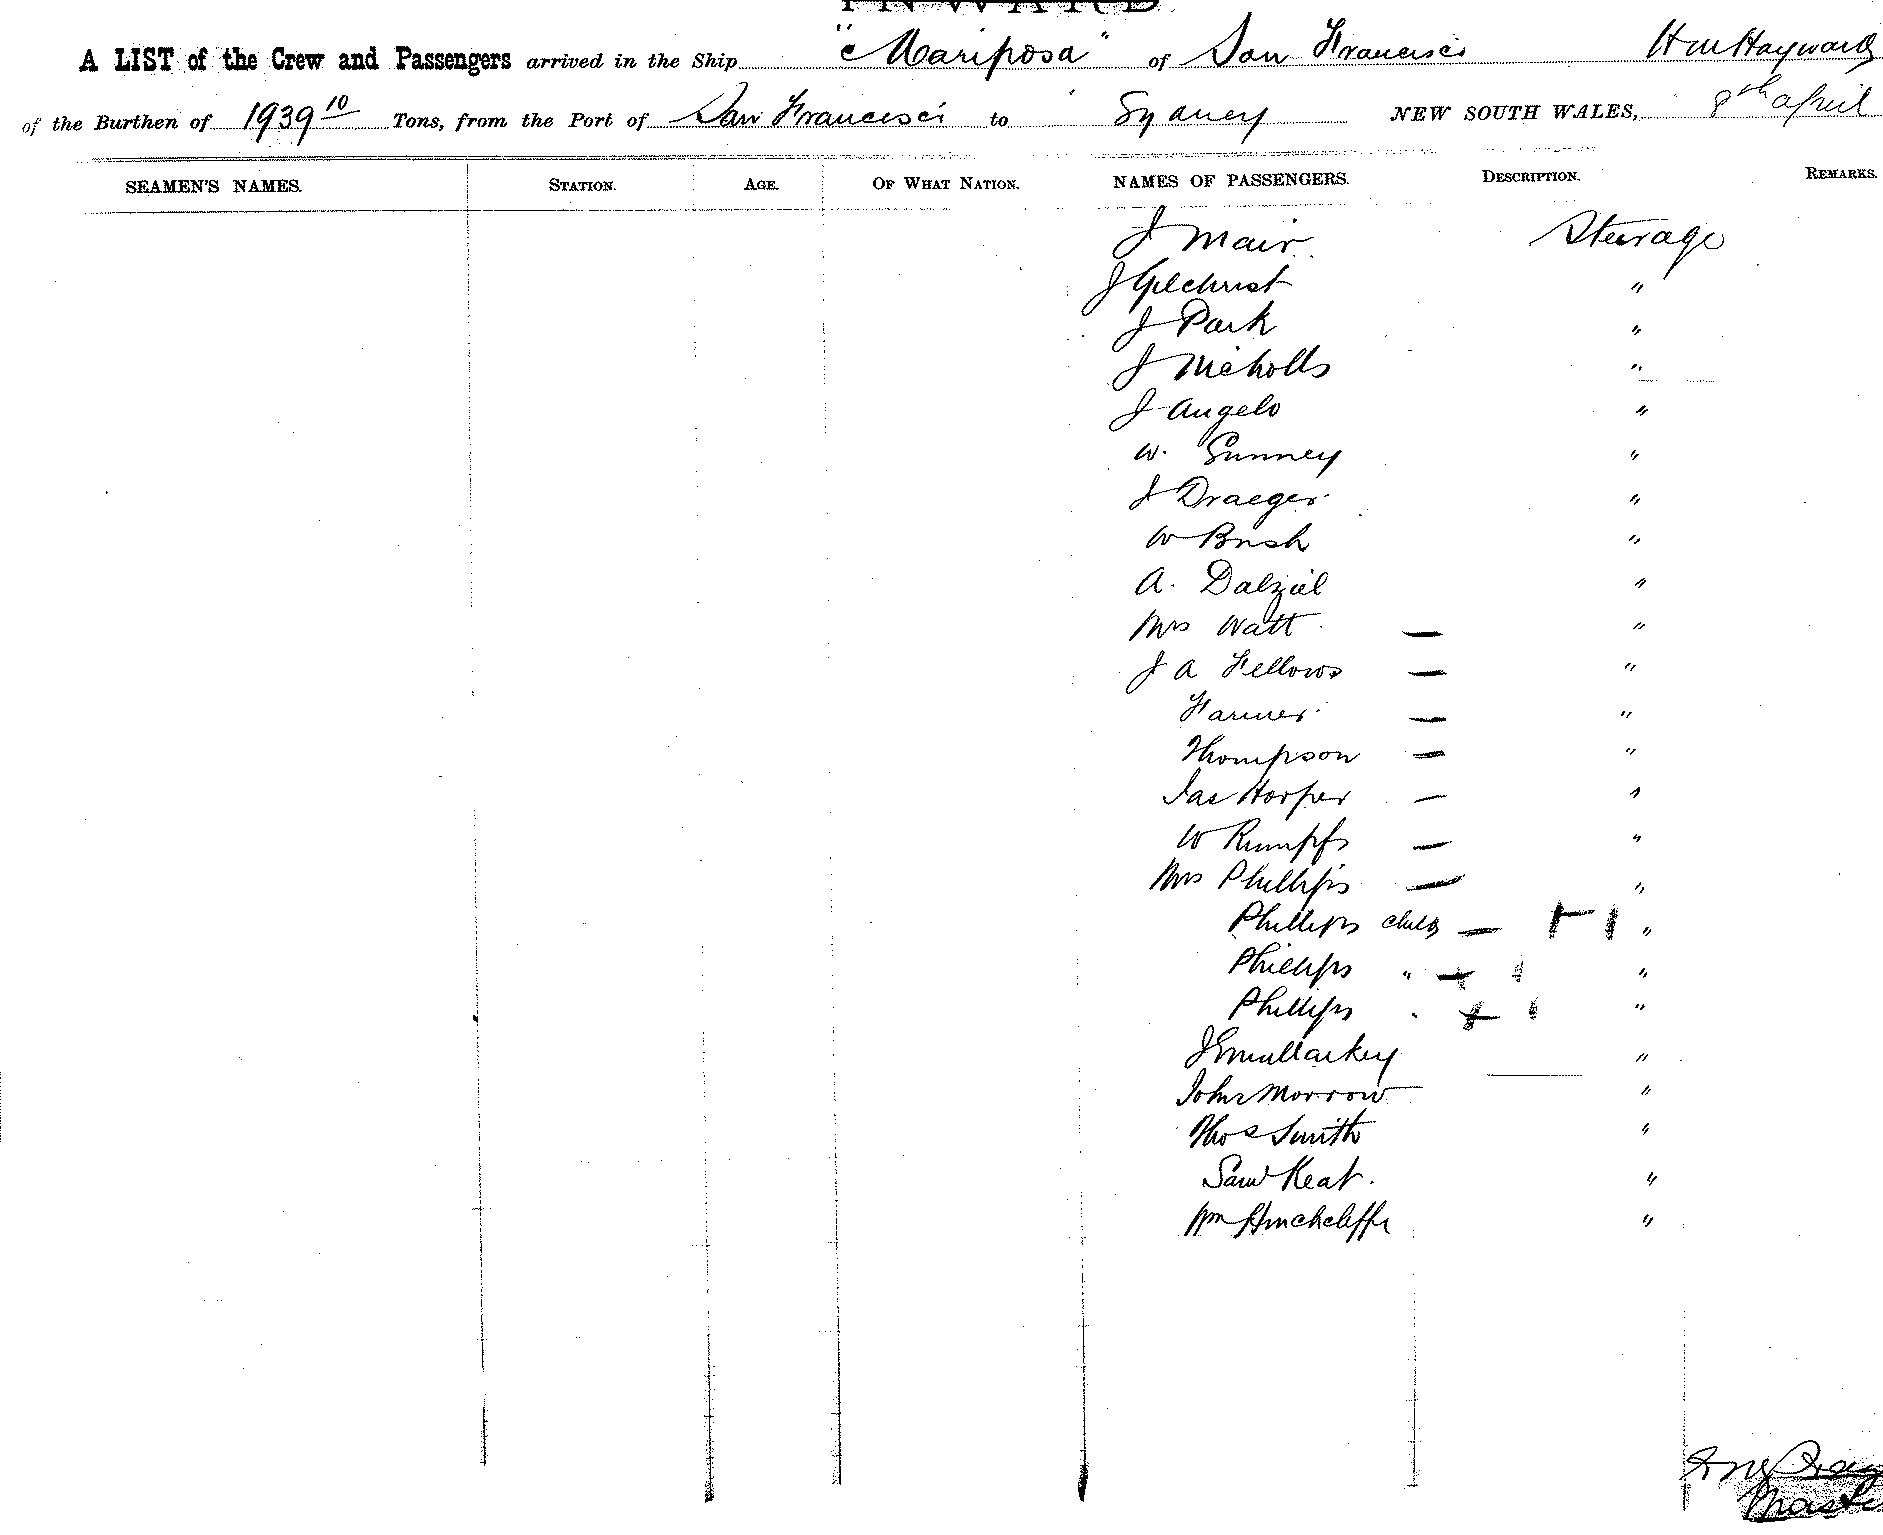 INWARD
A LIST of the Crew and Passengers arrived in the Ship "Mariposa" of San Francisco HM Hayward
of the Burthen of 1939 10 Tons, from the Port of San Francisco to Sydney NEW SOUTH WALES, 8th April
SEAMEN'S NAMES. STATION. AGE. OF WHAT NATION. NAMES OF PASSENGERS. DESCRIPTION. REMARKS.
J Mair Steerage
J Gilchrist "
J Park "
J Nicholls "
J Angelo "
W. Gunney "
J Draeger "
W Bush "
A. Dalziel "
Mrs Watt — "
J A Fellows — "
Farmer — "
Thompson — "
Jas Harper — "
W Rumpf — "
Mrs Phillips — "
Phillips child — "
Phillips " "
Phillips " "
J Mullarkey "
John Morrow "
Thos Smith "
Saml Keat. "
Wm Hinchcliffe "
Master